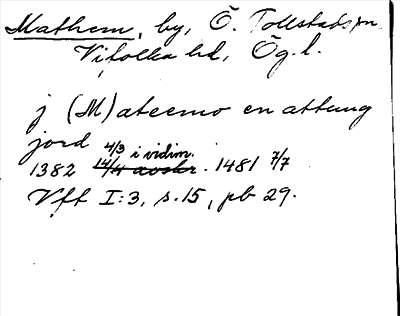 Mathem, by, Ö. Tollstads sn
Vifolka hd, Ög. l.
j (M)ateemo en attung
jord
1382 4/3 i vidim. 14/4 avskr. 1481 7/7
Vff I:3, s. 15, pb 29.